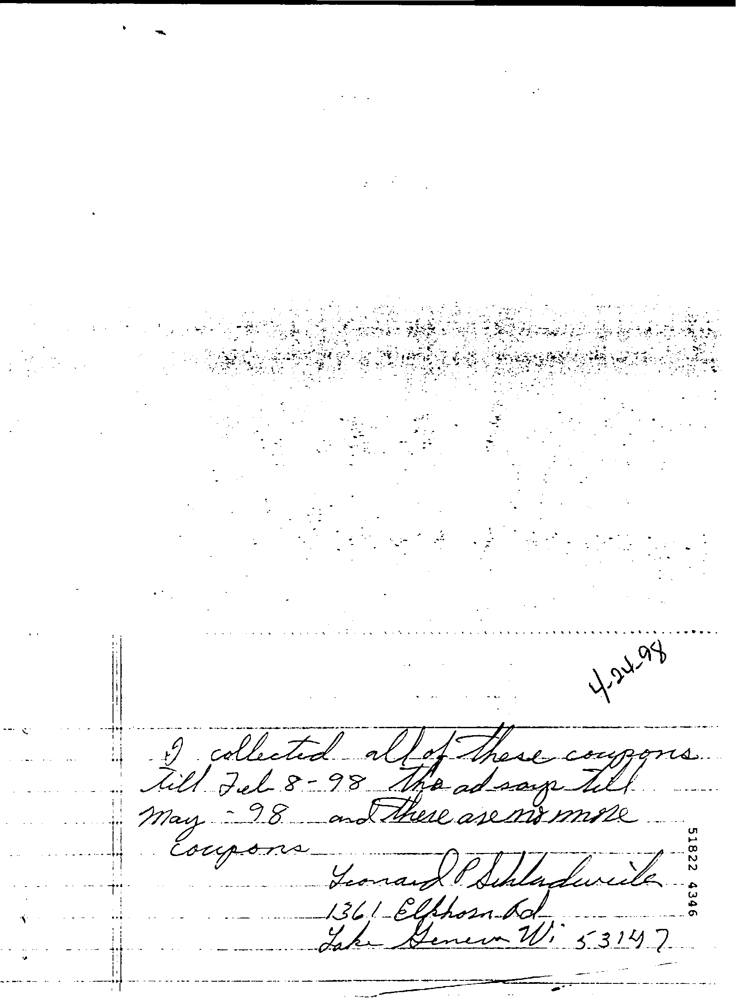 4-24-98
I collected all of these coupons
till Feb 8-98 the ad says till
May - 98 and there are no more
coupons
Leonard P Schladweiler
1361 Elkhorn Rd
Lake Geneva Wi 53147
51822 4346